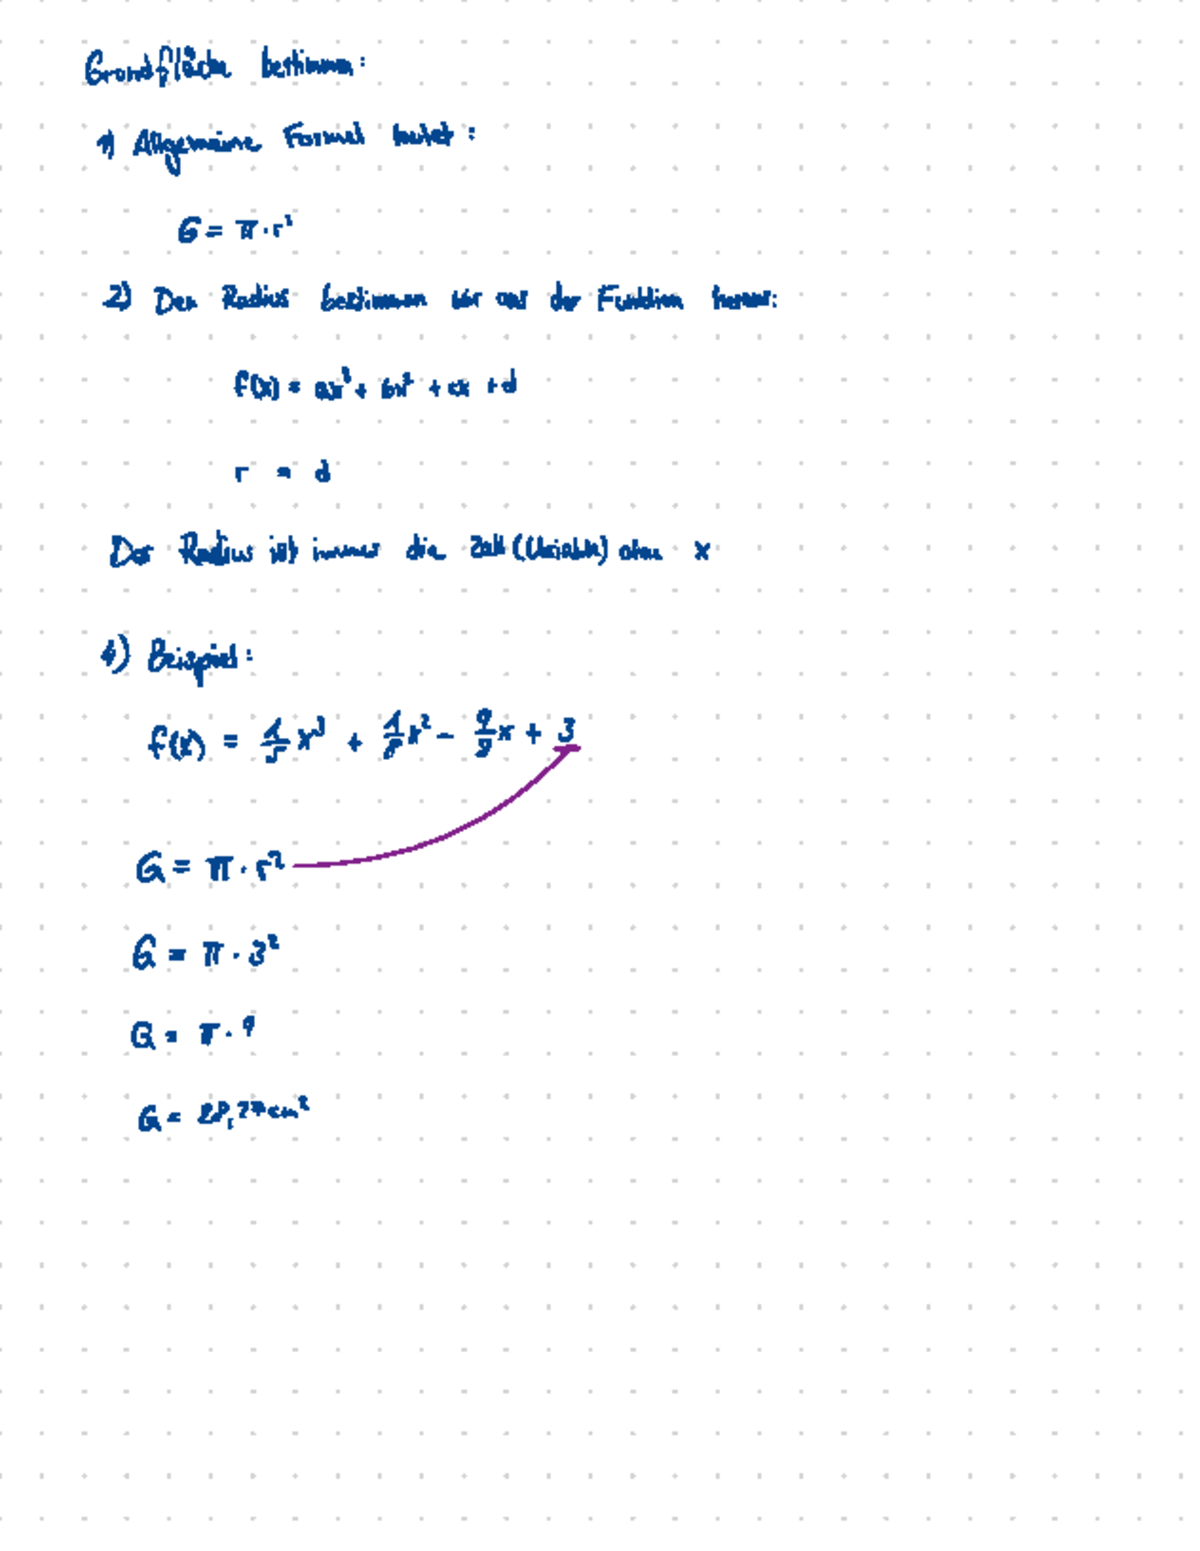 Grundfläche bestimmen:
1) Allgemeine Formel lautet:
G = π · r²
2) Den Radius bestimmen wir aus der Funktion heraus:
f(x) = ax³ + bx² + cx + d
r = d
Der Radius ist immer die Zahl (Variable) ohne x
4) Beispiel:
f(x) = 1/5 x³ + 1/8 x² - 9/9 x + 3
G = π · r²
G = π · 3²
G = π · 9
G = 28,27 cm²